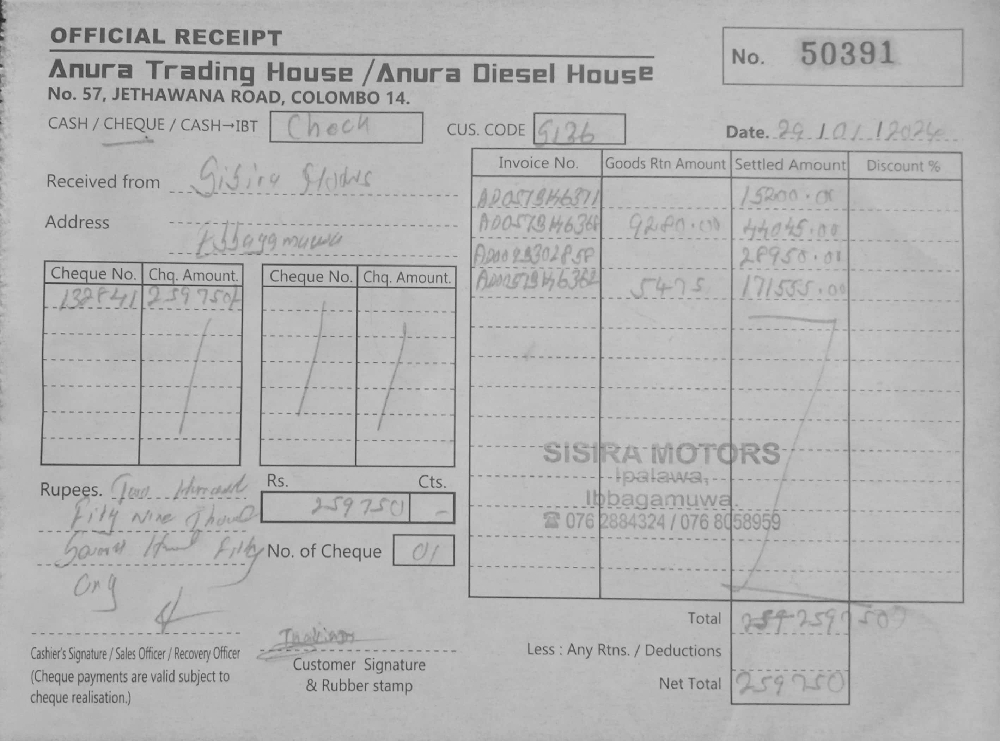 OFFICIAL RECEIPT
No. 50391
Anura Trading House / Anura Diesel House
No. 57, JETHAWANA ROAD, COLOMBO 14.
CASH / CHEQUE / CASH→IBT Check CUS. CODE Date. 29/01/2024
Received from
Address Ibbagamuwa
Invoice No. Goods Rtn Amount Settled Amount Discount %
15200.00
9280.00 44045.00
28950.00
5475 171555.00
Cheque No. Chq. Amount. Cheque No. Chq. Amount.
132841 259750/-
SISIRA MOTORS
Ipalawa,
Ibbagamuwa.
☎ 076 2884324 / 076 8058959
Rupees. Two Hundred
Fifty Nine
Fifty
Rs. Cts.
259750 -
No. of Cheque 01
Total
Less : Any Rtns. / Deductions
Net Total 259750
Cashier's Signature / Sales Officer / Recovery Officer
(Cheque payments are valid subject to
cheque realisation.)
Customer Signature
& Rubber stamp